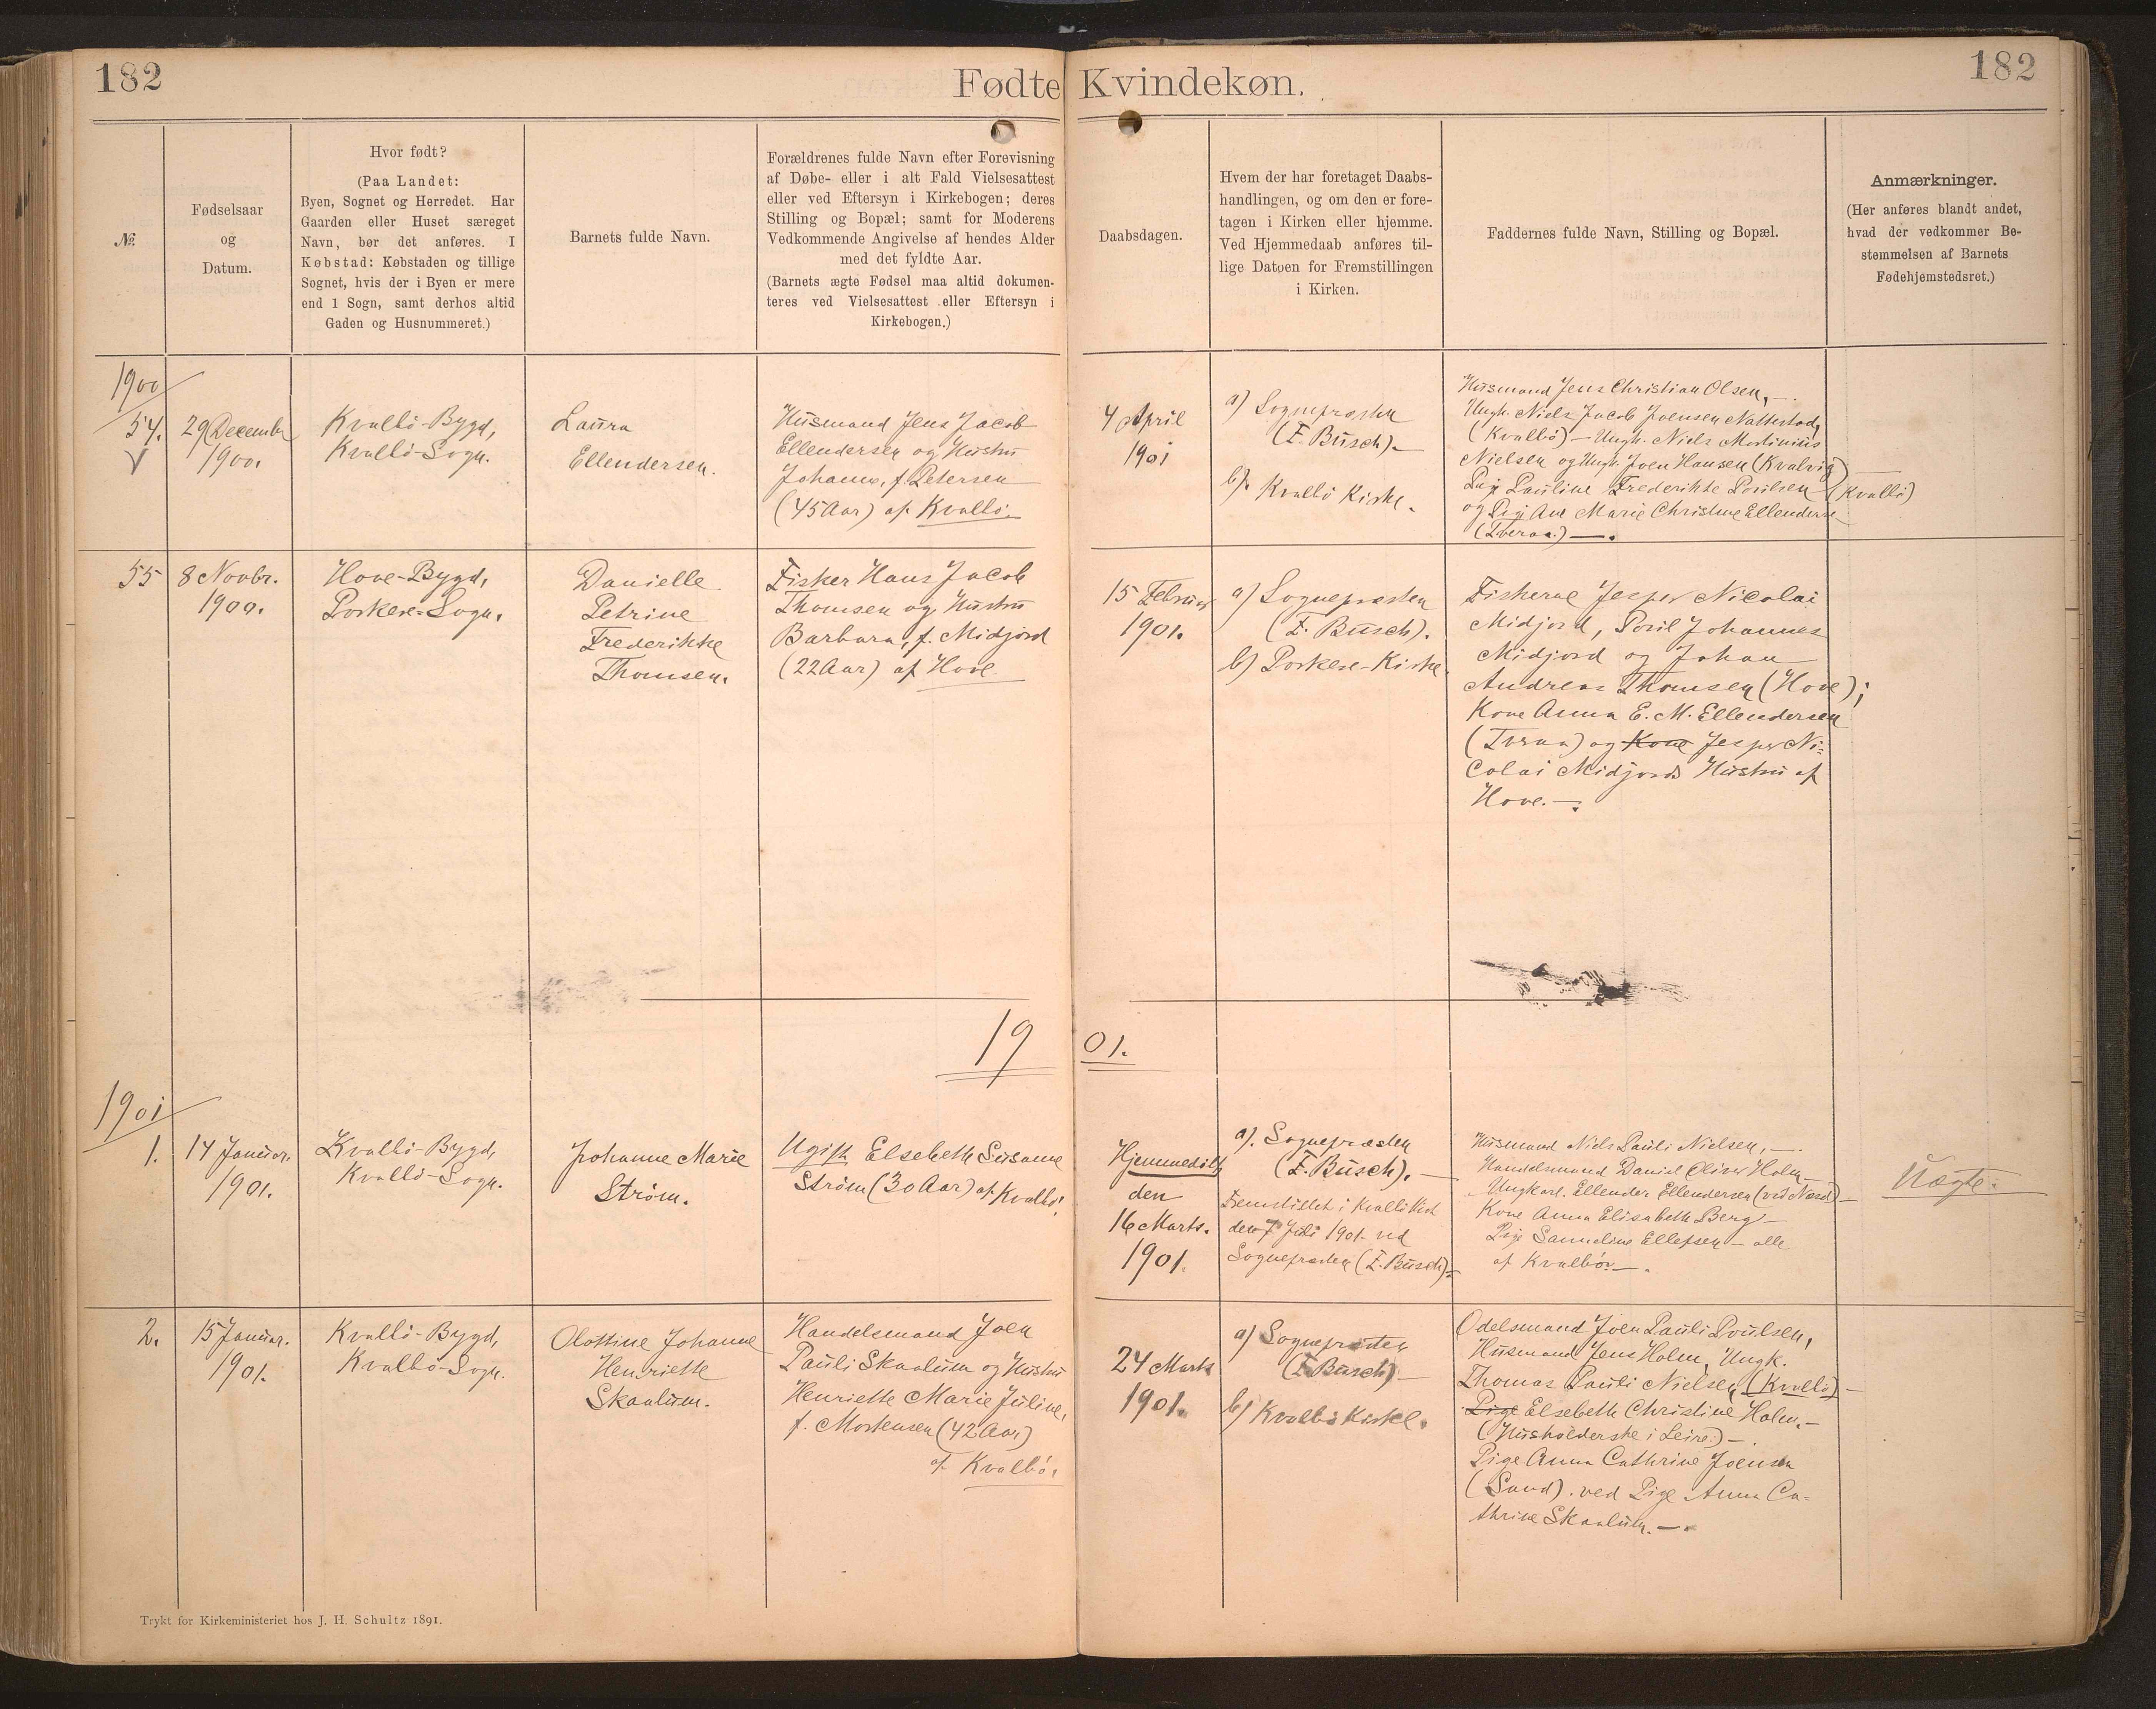 182
Fødte Kvindekøn.
182
№.
Fødselsaar
og
Datum.
Hvor født?
(Paa Landet:
Byen, Sognet og Herredet. Har
Gaarden eller Huset særeget
Navn, bør det anføres. I
Købstad: Købstaden og tillige
Sognet, hvis der i Byen er mere
end 1 Sogn, samt derhos altid
Gaden og Husnummeret.)
Barnets fulde Navn.
Forældrenes fulde Navn efter Forevisning
af Døbe- eller i alt Fald Vielsesattest
eller ved Eftersyn i Kirkebogen; deres
Stilling og Bopæl; samt for Moderens
Vedkommende Angivelse af hendes Alder
med det fyldte Aar.
(Barnets ægte Fødsel maa altid dokumen-
teres ved Vielsesattest eller Eftersyn i
Kirkebogen.)
Daabsdagen.
Hvem der har foretaget Daabs-
handlingen, og om den er fore-
tagen i Kirken eller hjemme.
Ved Hjemmedaab anføres til-
lige Datoen for Fremstillingen
i Kirken.
Faddernes fulde Navn, Stilling og Bopæl.
Anmærkninger.
(Her anføres blandt andet,
hvad der vedkommer Be-
stemmelsen af Barnets
Fødehjemstedsret.)
1900
54.
29 December
1900.
Kvalbö-Bygd,
Kvalbö-Sogn.
Laura
Ellendersen.
Husmand Jens Jacob
Ellendersen og Hustru
Johanne, f. Petersen
(45 Aar) af Kvalbö.
4 April
1901
a) Sognepræsten
(F. Busch).
b). Kvalbö Kirke.
Husmand Jens Christian Olsen,
Ungk. Niels Jacob Joensen Nattestad,
(Kvalbö) - Ungk. Niels Martinius
Nielsen og Ungk. Joen Hansen (Kvalvig)
Pige Pauline Frederikke Poulsen (Kvalbö)
og Pige Ane Marie Christine Ellendersen
(Tveraa.)
55
8 Novbr.
1900.
Hove-Bygd,
Porkere-Sogn.
Danielle
Petrine
Frederikke
Thomsen.
Fisker Hans Jacob
Thomsen og Hustru
Barbara, f. Midjord
(22 Aar) af Hove.
15 Februar
1901.
a) Sognepræsten
(F. Busch).
b) Porkere-Kirke.
Fiskerne Jesper Nicolai
Midjord, Poul Johannes
Midjord og Johan
Andreas Thomsen (Hove);
Kone Anna E. M. Ellendersen
(Tveraa) og Kone Jesper Ni-
colai Midjords Hustru af
Hove.
1901.
1901
1.
14 Januar.
1901.
Kvalbö-Bygd,
Kvalbö-Sogn.
Johanne Marie
Ström.
Ugift Elsebeth Susanne
Ström (30 Aar) af Kvalbö.
Hjemmedöbt
den
16 Marts.
1901.
a). Sognepræsten
(F. Busch).
Fremstillet i Kvalbö Kirke
den 7 Juli 1901. ved
Sognepræsten (F. Busch)
Husmand Niels Pauli Nielsen,
Handelsmand Daniel Oliver Holm
Ungkarl. Ellender Ellendersen (ved Næsd)
Kone Anna Elisabeth Berg
Pige Sanneline Ellefsen - alle
af Kvalbö.
Uægte.
2.
15 Januar.
1901.
Kvalbö-Bygd,
Kvalbö-Sogn.
Olottine Johanne
Henriette
Skaalum.
Handelsmand Joen
Pauli Skaalum og Hustru
Henriette Marie Juline,
f. Mortensen (42 Aar)
af Kvalbö.
24 Marts
1901.
a) Sognepræsten
(F. Busch)
b) Kvalbö Kirke.
Odelsmand Joen Pauli Poulsen,
Husmand Jens Holm, Ungk.
Thomas Pauli Nielsen (Kvalbö)
Pige Elsebeth Christine Holm.
(Husholderske i Leire.)
Pige Anna Cathrine Joensen
(Sand). ved Pige Anna Ca-
thrine Skaalum.
Trykt for Kirkeministeriet hos J. H. Schultz 1891.